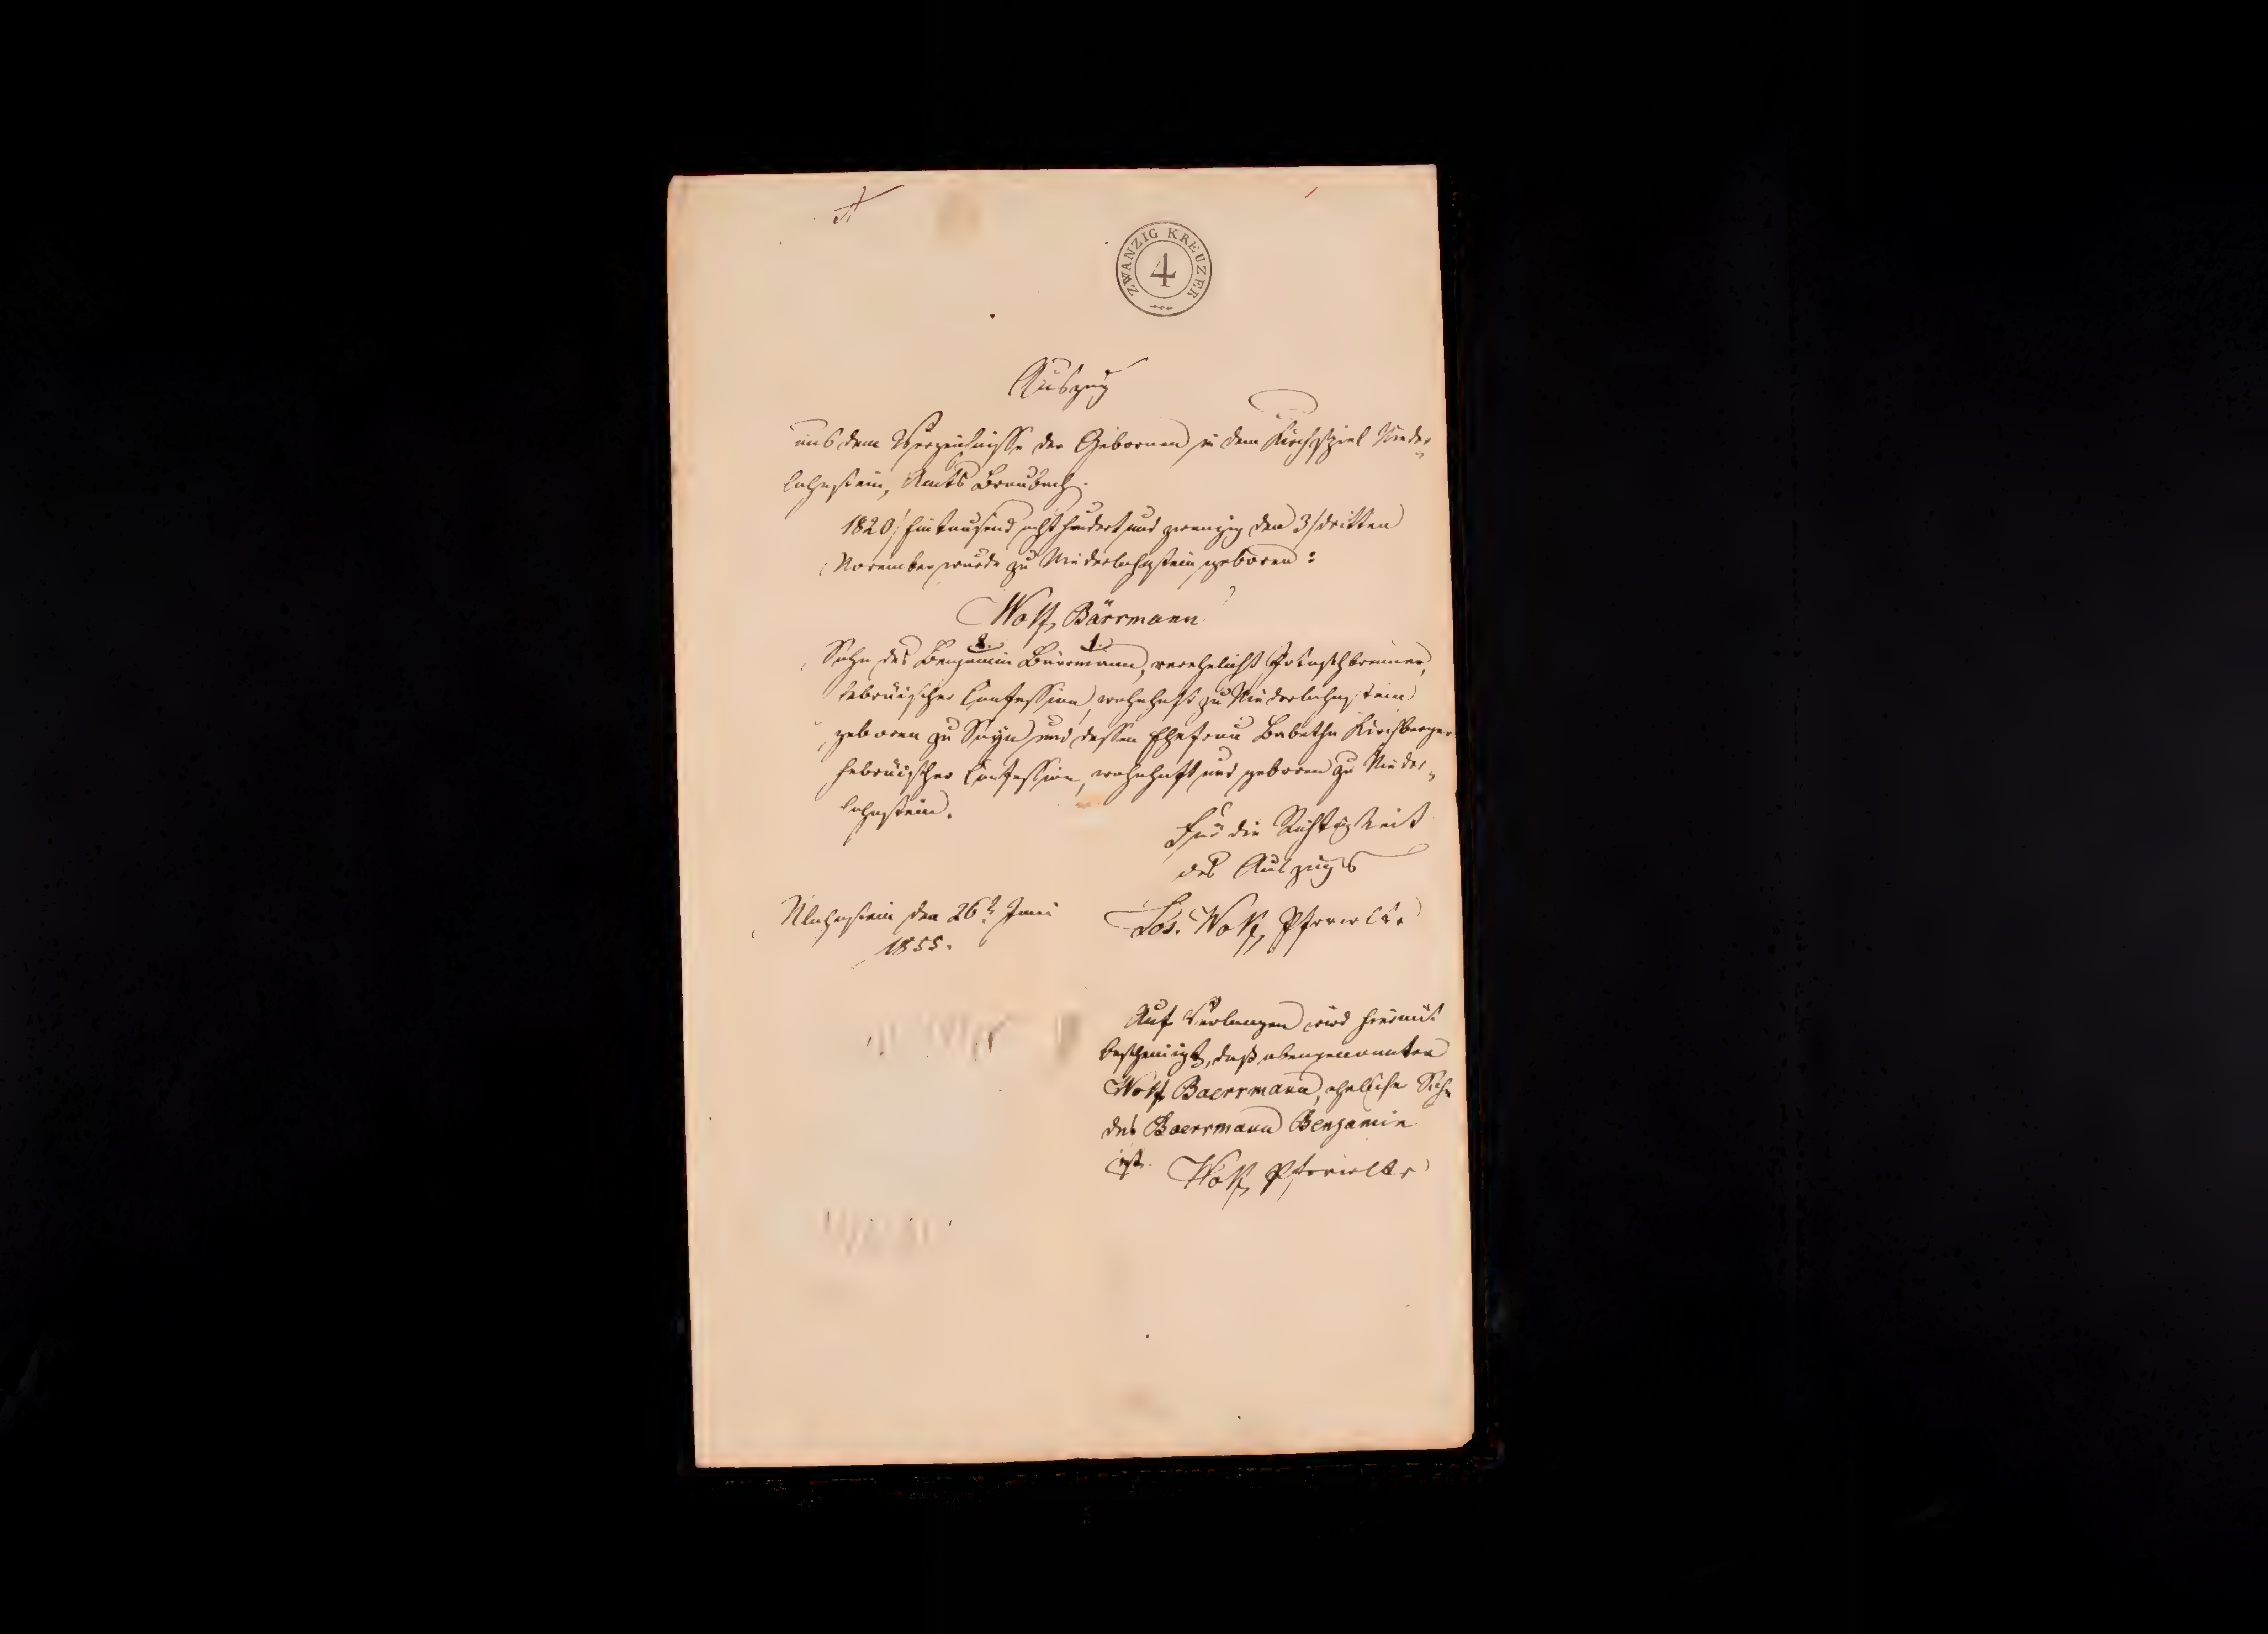 ZWANZIG KREUZER
4
Auszug
aus dem Verzeichnisse der Gebornen in dem Kirchspiel Nieder-
lahnstein, Amts Braubach.
1820/ Eintausend acht hundert und zwanzig den 3/dritten
November wurde zu Niederlahnstein geboren:
Wolf, Bärrmann
2. 1.
Sohn des Benjamin Bärrmann, verehelicht
hebräischer Confession, wohnhaft zu Niederlahnstein
geboren zu Sayn und dessen Ehefrau Babetha Hirschberger
hebräischer Confession, wohnhaft und geboren zu Nieder-
lahnstein.
Für die Richtigkeit
des Auszugs
Nlahnstein den 26t Juni
1855.
Jos. Wolf, Pfrvrwltr
Auf Verlangen wird hiermit
bescheinigt, daß obengenannter
Wolf Baerrmann, eheliche Sohn
des Baerrmann Benjamin
ist. Wolf, Pfrvrwltr